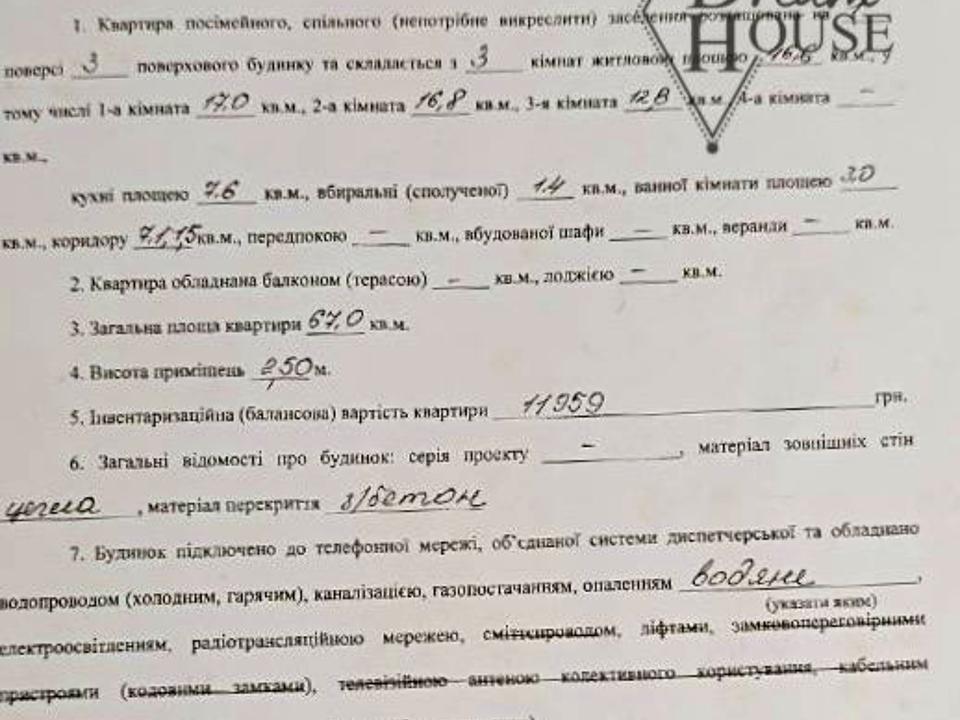 Dream
HOUSE
1. Квартира посімейного, спільного (непотрібне викреслити) заселення розташована на
поверсі 3 поверхового будинку та складається з 3 кімнат житловою площею 46,6 кв.м., у
тому числі 1-а кімната 17,0 кв.м., 2-а кімната 16,8 кв.м., 3-я кімната 12,8 кв.м., 4-а кімната –
кв.м.,
кухні площею 7.6 кв.м., вбиральні (сполученої) 1.4 кв.м., ванної кімнати площею 3.0
кв.м., коридору кв.м., передпокою – кв.м., вбудованої шафи – кв.м., веранди – кв.м.
2. Квартира обладнана балконом (терасою) – кв.м., лоджією – кв.м.
3. Загальна площа квартири 67,0 кв.м.
4. Висота приміщень 2,50 м.
5. Інвентаризаційна (балансова) вартість квартири 11959 грн.
6. Загальні відомості про будинок: серія проекту –, матеріал зовнішніх стін
цегла, матеріал перекриття з/бетон
7. Будинок підключено до телефонної мережі, об'єднаної системи диспетчерської та обладнано
водопроводом (холодним, гарячим), каналізацією, газопостачанням, опаленням водяне,
(указати яким)
електроосвітленням, радіотрансляційною мережею, сміттєпроводом, ліфтами, замковопереговірними
пристроями (кодовими замками), телевізійною антеною колективного користування, кабельним